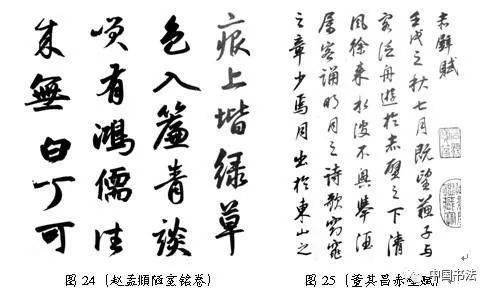 痕上堦緑草
色入簾青談
咲有鴻儒往
来無白丁可
图 24 (赵孟頫陋室铭卷)
赤壁賦
壬戌之秋七月既望蘇子与
客泛舟遊於赤壁之下清
風徐来水波不興舉酒
屬客誦明月之詩歌窈窕
之章少焉月出於東山之
图 25 (董其昌赤壁赋)
中国书法